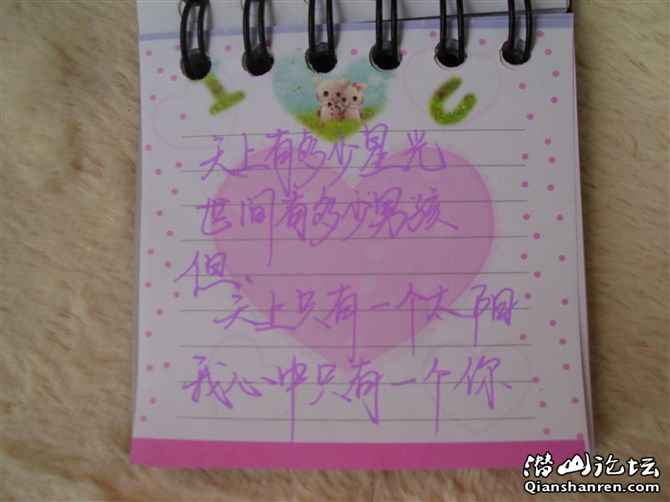 I U
天上有多少星光
世间有多少男孩
但
天上只有一个太阳
我心中只有一个你
潜山论坛
Qianshanren.com